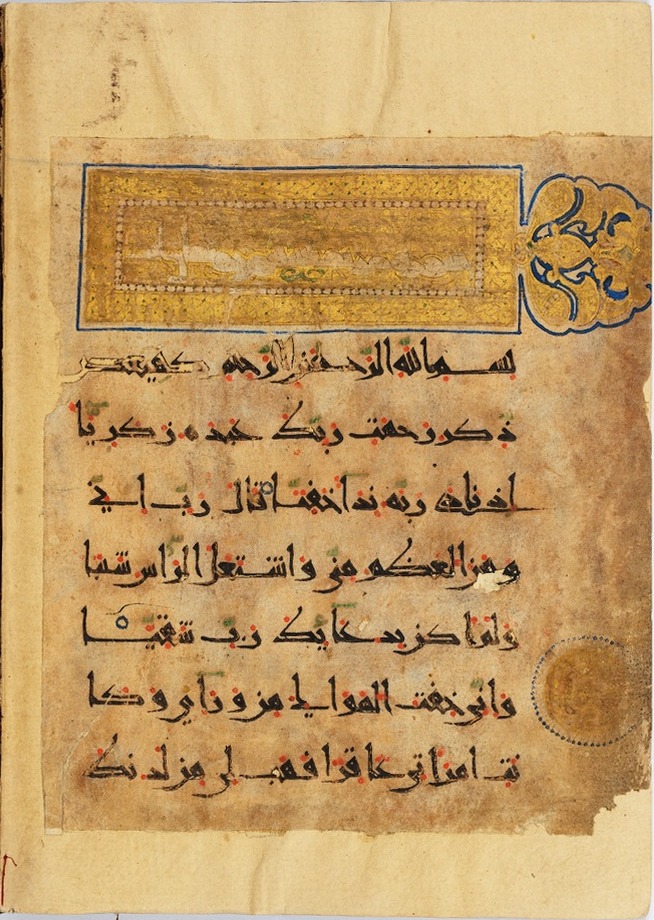 بسم الله الرحمن الرحيم كهيعص
ذكر رحمت ربك عبده زكريا
اذ نادى ربه ندا خفيا قال رب انى
وهن العظم منى واشتعل الراس شيبا
ولم اكن بدعائك رب شقيا
وانى خفت الموالى من وراى وكا
نت امراتى عاقرا فهب لى من لدنك